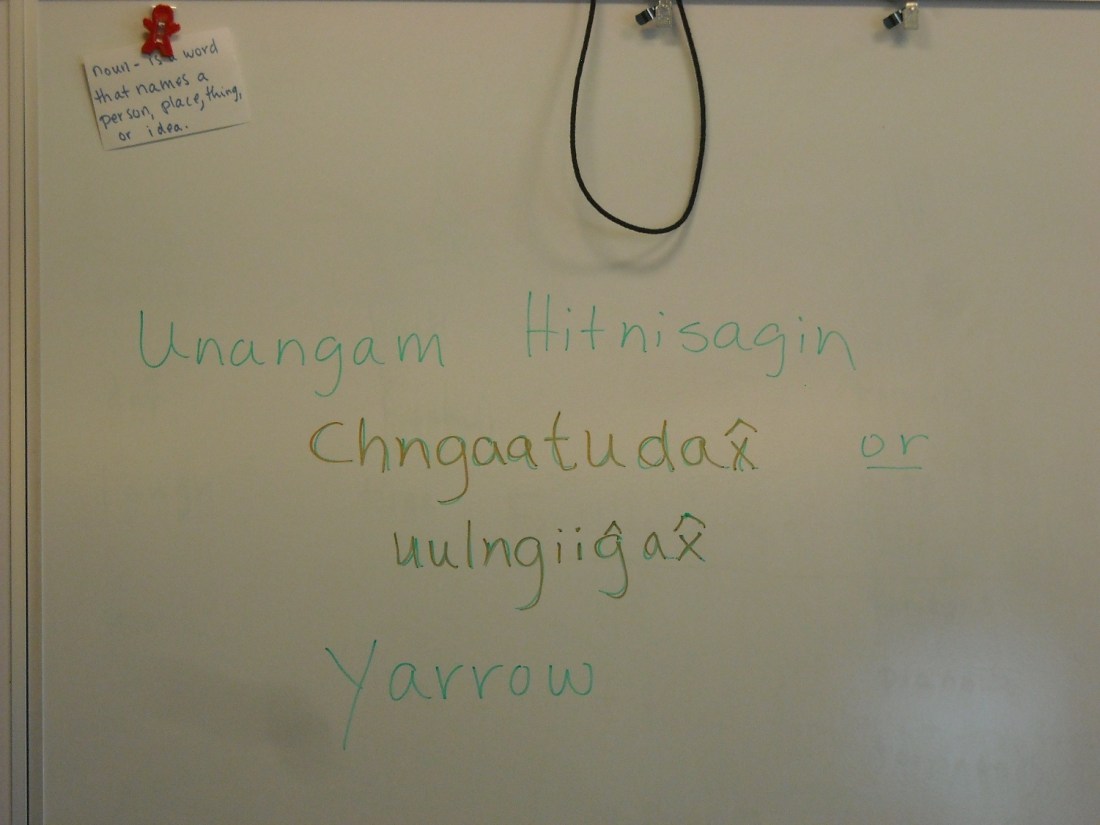 noun - is a word
that names a
person, place, thing,
or idea.
Unangam Hitnisagin
Chngaatudax̂ or
uulngiiĝax̂
Yarrow